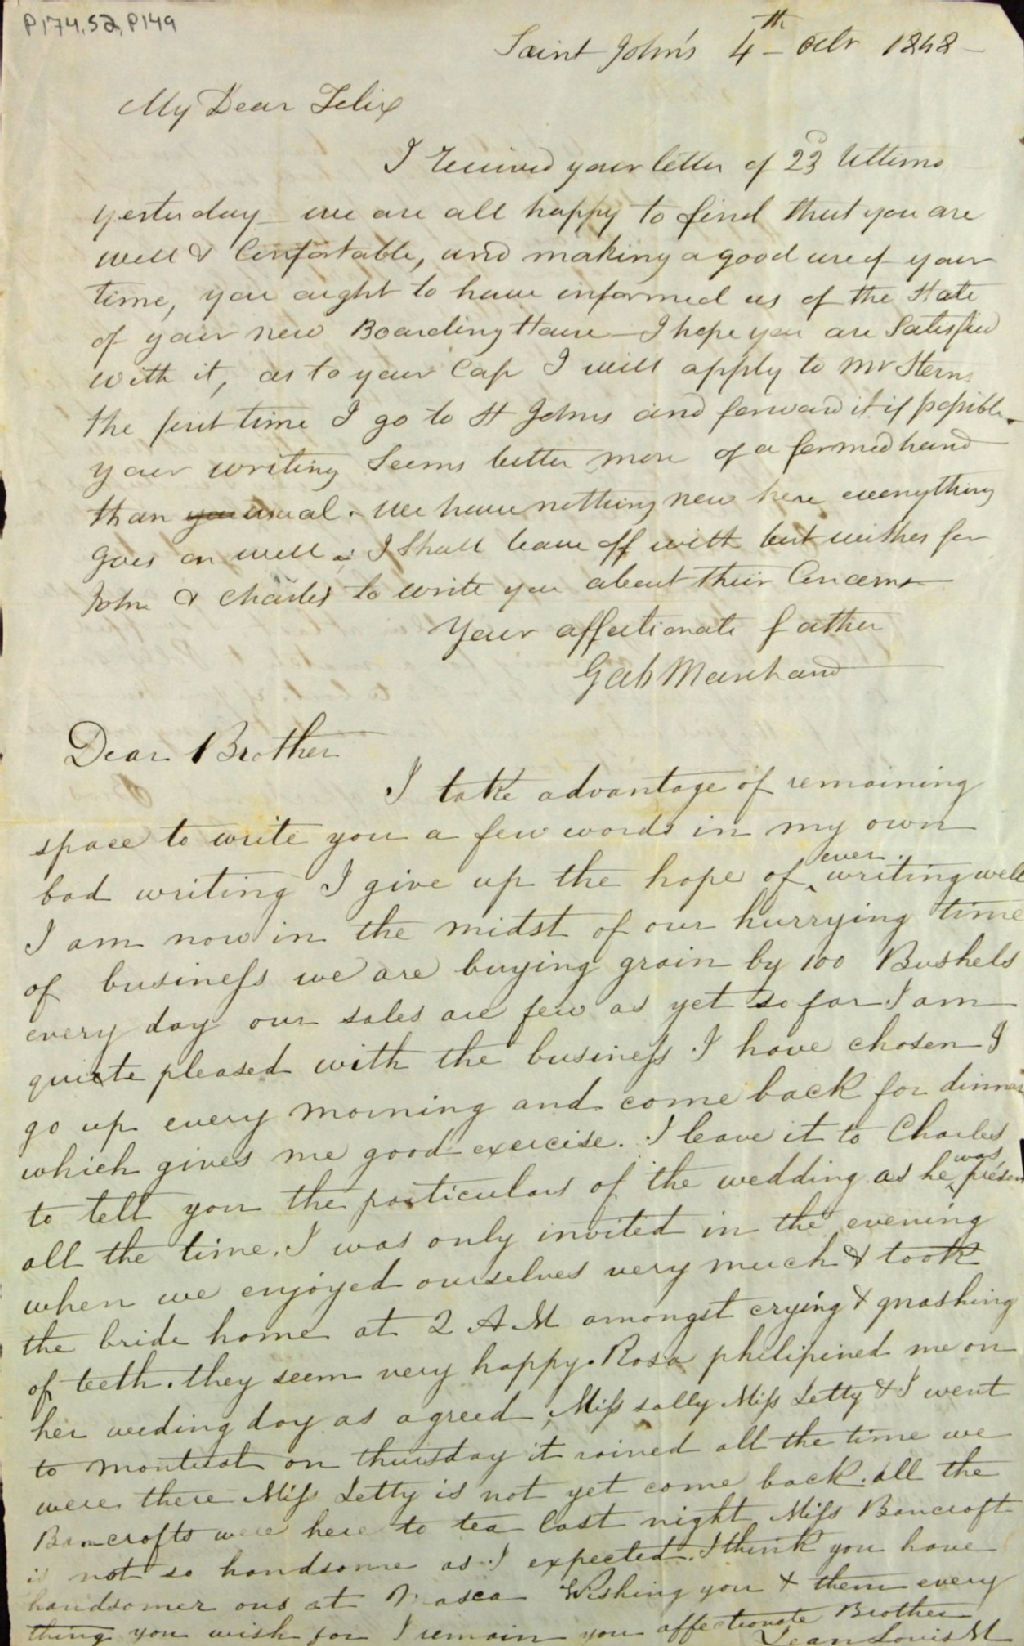 P174,S2,P149
Saint John's 4th Octr 1848
My Dear Felix
I received your letter of 23 Ultimo
yesterday we are all happy to find that you are
well & Confortable, and making a good use of your
time, you ought to have informed us of the State
of your new Boarding House I hope you are Satisfied
with it, as to your Cap I will apply to Mr Sterns
the first time I go to St Johns and forward it if possible.
your writing Seems better more of a formed hand
than you usual. we have nothing new here everything
goes on well. I Shall leave off with best wishes for
John & Charles to write you about their Concerns
Your affectionate father
Gab Marchand
Dear Brother
I take advantage of remaining
space to write you a few words in my own
bad writing I give up the hope of ever writing well
I am now in the midst of our hurrying time
of business we are buying grain by 100 Bushels
every day our sales are few as yet so far I am
quiete pleased with the business I have chosen I
go up every morning and come back for dinner
which gives me good exercise. I leave it to Charles
to tell you the particulars of the wedding as he was présent
all the time. I was only invited in the evening
when we enjoyed ourselves very much & took
the bride home at 2 A M amongst crying & gnashing
of teeth. they seem very happy. Rosa philipined me on
her weding day as agreed, Miss Sally Miss Letty & I went
to montreal on thursday it rained all the time we
were there Miss Letty is not yet come back. All the
Bancrofts were here to tea last night Miss Bancroft
is not so handsome as I expected. I think you have
handsomer ons at Masca Wishing you & them every
thing you wish for I remain you affectionate Brother
Jean Louis M